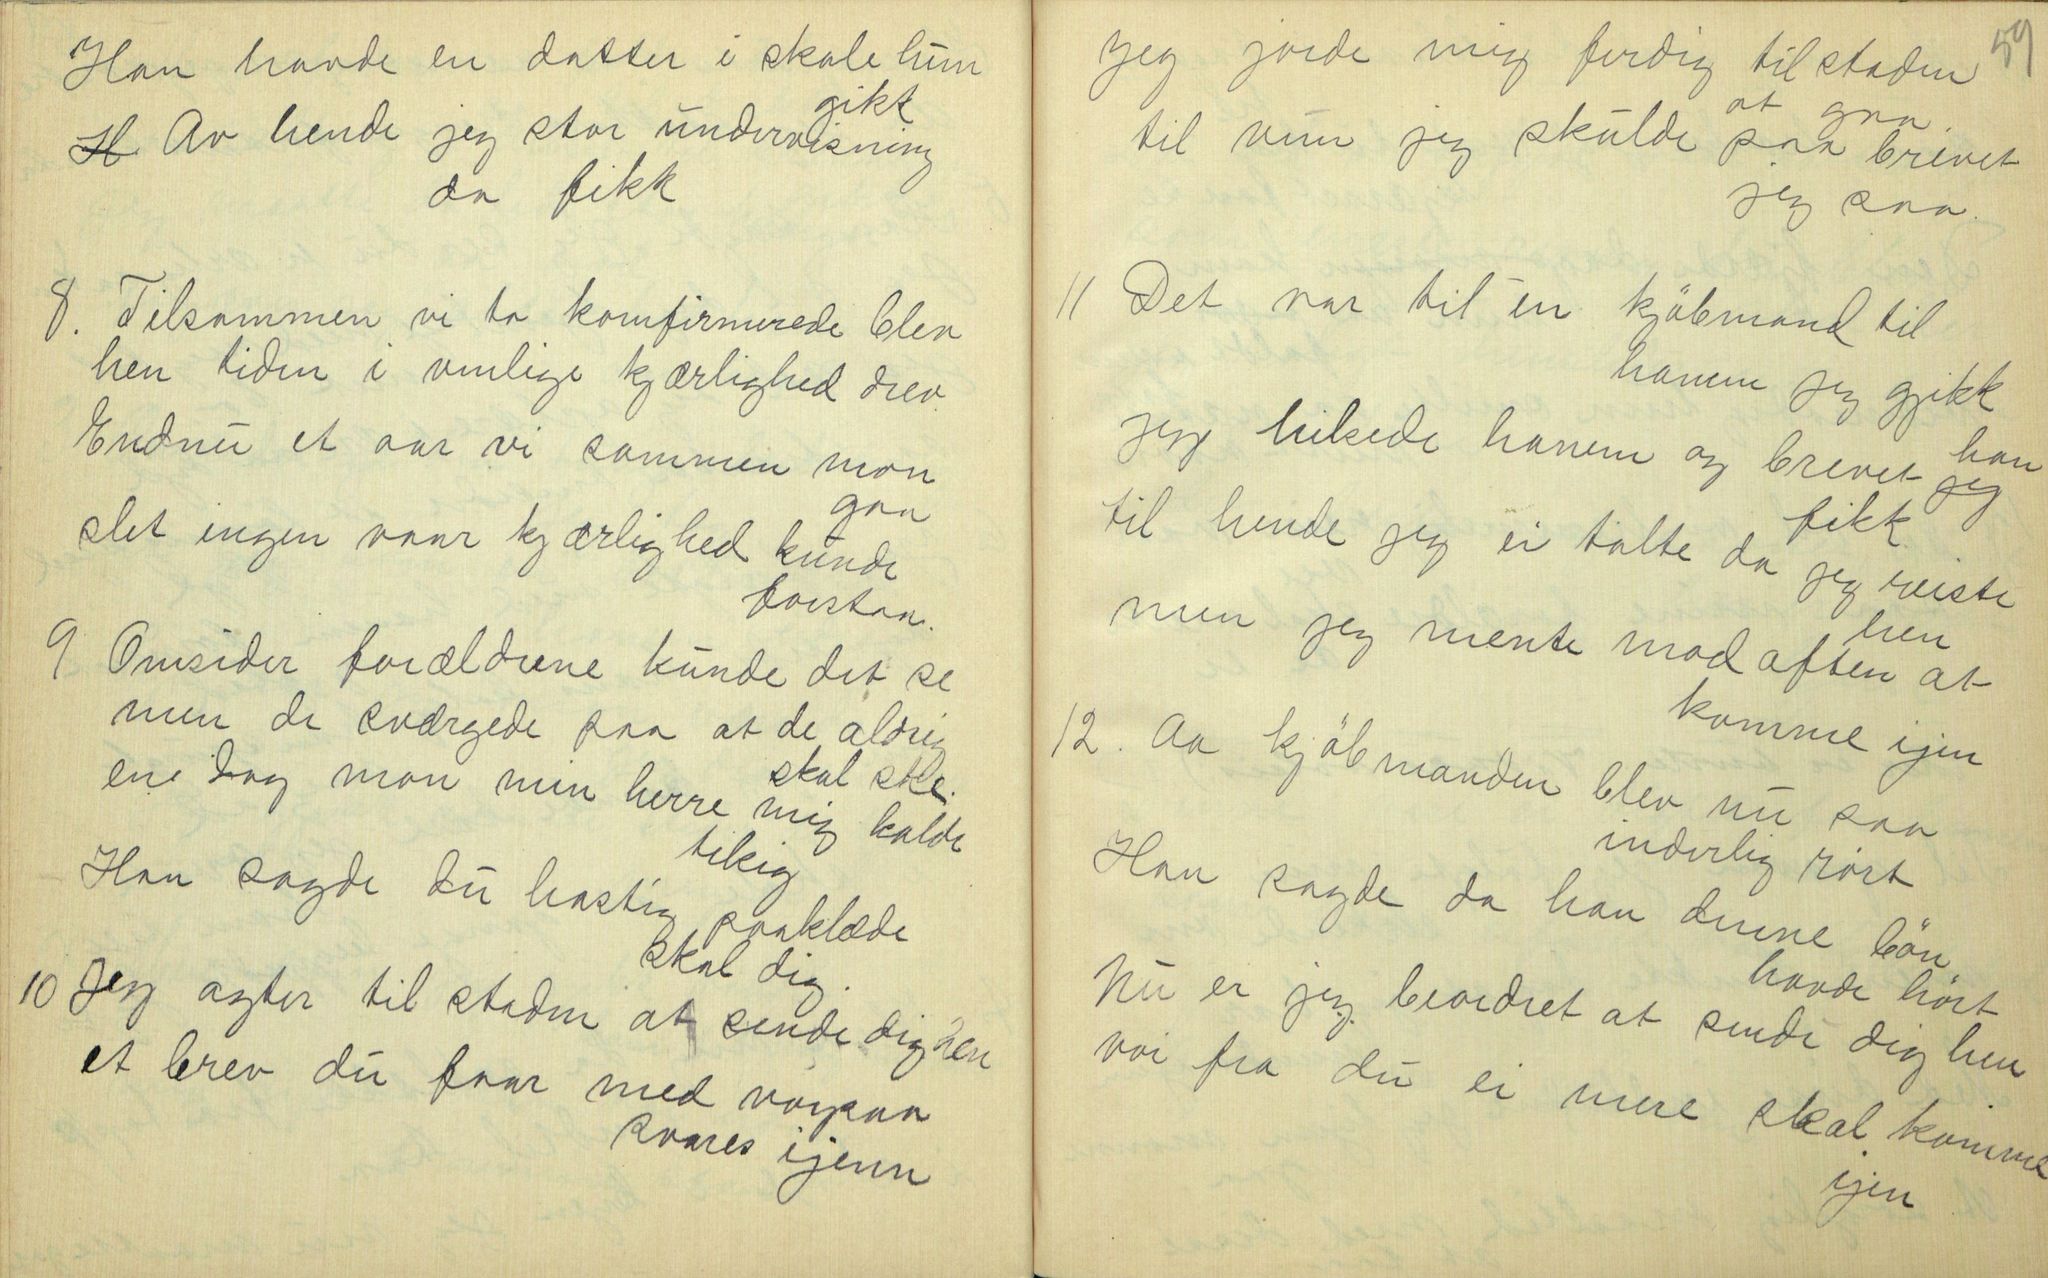 Han havde en datter i skole hun
gikt
H. Av hende jeg stor undervisning
da fikk
8. Tilsammen vi to komfirmerede blev
hen tiden i venlige kjærlighed drev
Endnu et aar vi sammen mon
gaa
slet ingen vaar kjærlighed kunde
forstaa.
9 Omsider forældrene kunde det se
men de sværgede paa at de aldrig
skal ske.
ene dag mon min herre mig kalde
tilsig
Han sagde du hastig paaklæde
skal dig.
10 Jeg agter til staden at sende dig hen
et brev du faar med vorpaa
svares ijenn
59
Jeg jorde mig ferdig til staden
at gaa.
til vem jeg skulde paa brevet
jeg saa.
11 Det var til en kjöbmand til
hanem jeg gjikk
jeg hilsede hanem og brevet han
jeg
fikk
til hende jeg ei talte da jeg reiste
hen
men jeg mente mod aften at
komme ijen
12. Aa kjöbmanden blev nu saa
inderlig rört
Han sagde da han denne bön
havde hört
Nu er jeg beordret at sende dig hen
vor fra du ei mere skal komme
ijen